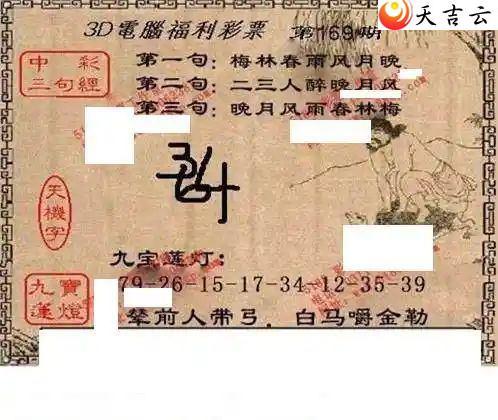 天吉云
3D電腦福利彩票 第169期
中彩
三句經
第一句：梅林春雨风月晚
第二句：二三人醉晚月风
第三句：晚月风雨春林梅
天機字
九宝莲灯：
九寶蓮燈
79-26-15-17-34-12-35-39
辇前人带弓．白马嚼金勒